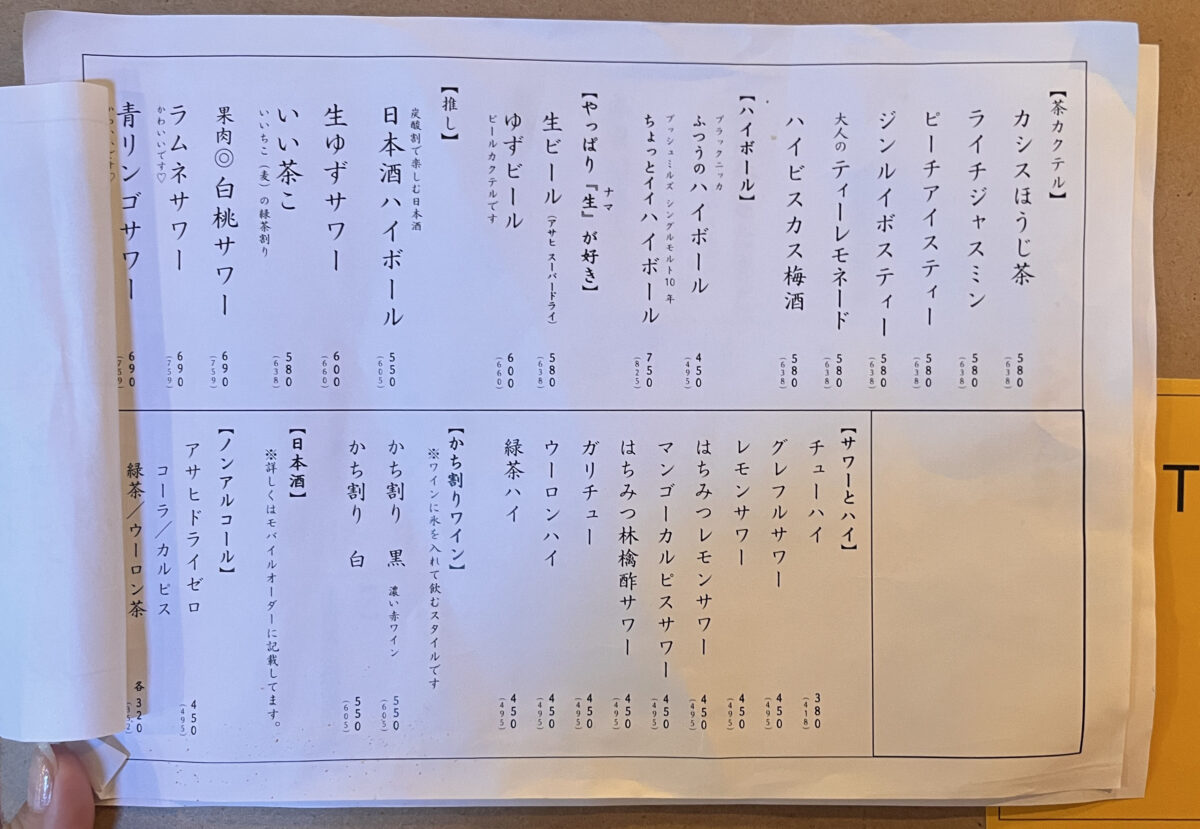 【茶カクテル】
カシスほうじ茶 580 (638)
ライチジャスミン 580 (638)
ピーチアイスティー 580 (638)
ジンルイボスティー 580 (638)
大人のティーレモネード 580 (638)
ハイビスカス梅酒 580 (638)
【ハイボール】
ブラックニッカ
ふつうのハイボール 450 (495)
ブッシュミルズ シングルモルト10年
ちょっとイイハイボール 750 (825)
ナマ
【やっぱり『生』が好き】
生ビール (アサヒ スーパードライ) 580 (638)
ゆずビール 600 (660)
ビールカクテルです
【推し】
炭酸割で楽しむ日本酒
日本酒ハイボール 550 (605)
生ゆずサワー 600 (660)
いい茶こ 580 (638)
いいちこ(麦)の緑茶割り
果肉◎白桃サワー 690 (759)
ラムネサワー 690 (759)
かわいいです♡
青リンゴサワー 690 (759)
かわいいです♡
【サワーとハイ】
チューハイ 380 (418)
グレフルサワー 450 (495)
レモンサワー 450 (495)
はちみつレモンサワー 450 (495)
マンゴーカルピスサワー 450 (495)
はちみつ林檎酢サワー 450 (495)
ガリチュー 450 (495)
ウーロンハイ 450 (495)
緑茶ハイ 450 (495)
【かち割りワイン】
※ワインに氷を入れて飲むスタイルです
かち割り 黒 濃い赤ワイン 550 (605)
かち割り 白 550 (605)
【日本酒】
※詳しくはモバイルオーダーに記載してます。
【ノンアルコール】
アサヒドライゼロ 450 (495)
コーラ／カルピス
緑茶／ウーロン茶 各320 (352)
T